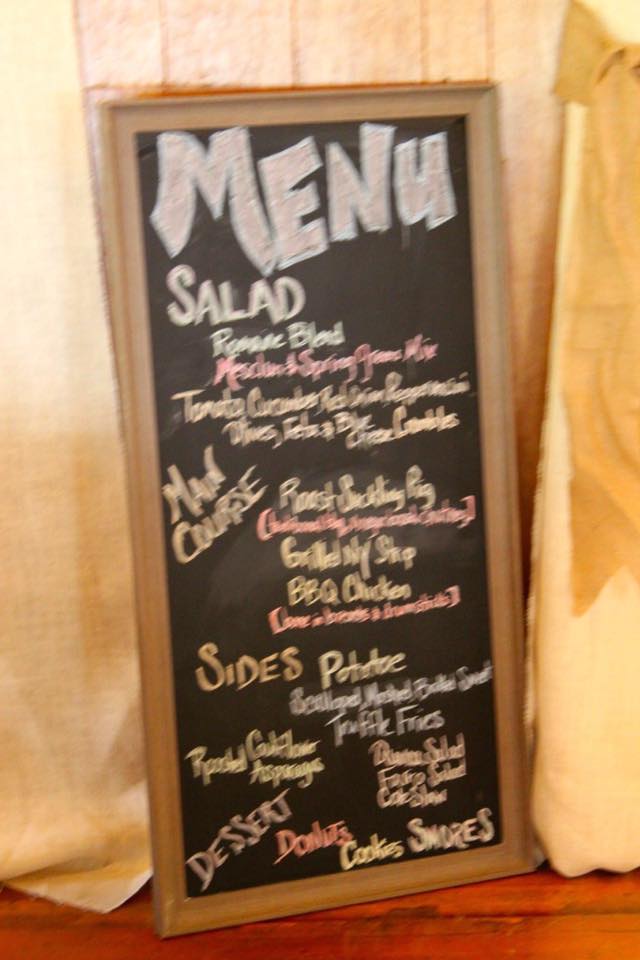 MENU
SALAD
Romaine Blend
Mesclun & Spring Greens Mix
Tomato, Cucumber, Red Onion, Pepperoncini
Olives, Feta, & Blue
Cheese Crumbles
MAIN
COURSE
Roast Suckling Pig
Grilled NY Strip
BBQ Chicken
[bone in breasts & drumsticks]
SIDES
Potatoe
Scalloped, Mashed, Baked Sweet
Truffle Fries
Roasted Cauliflower
Asparagus
Quinoa Salad
Farro Salad
Cole Slaw
DESSERT
DONUTS
Cookies
SMORES